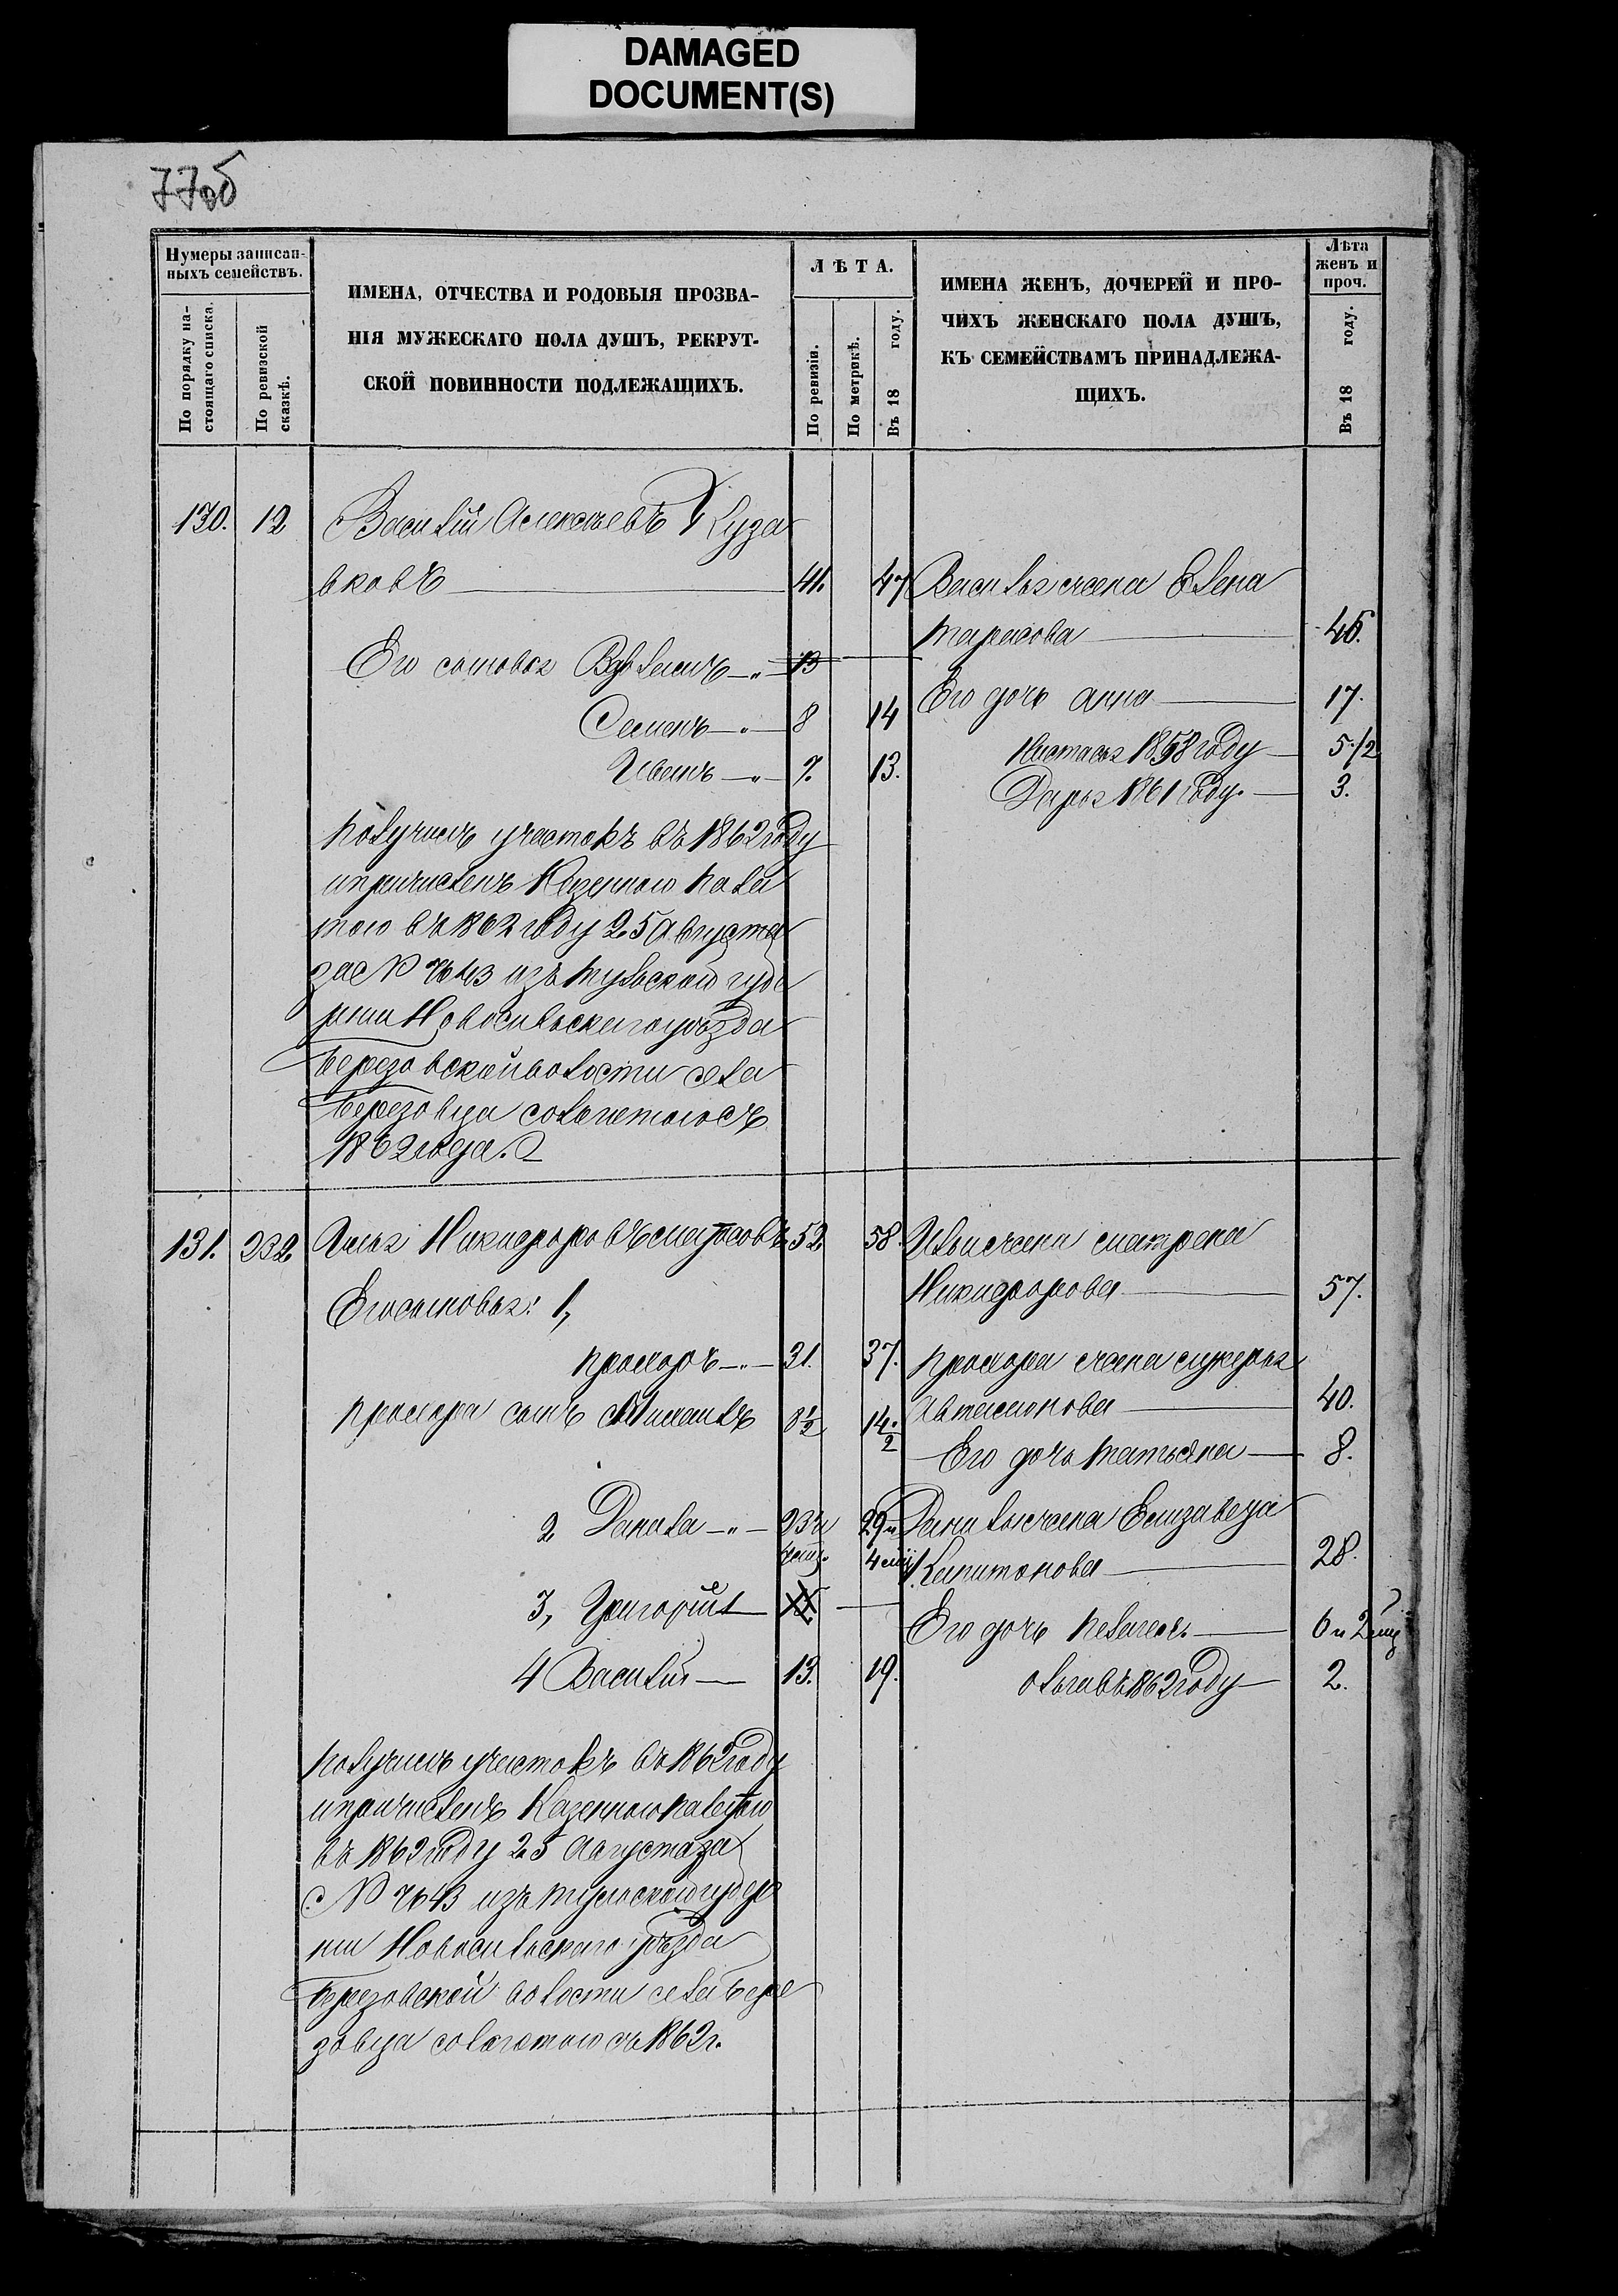 DAMAGED
DOCUMENT(S)
77об
Нумеры записан-
ныхъ семействъ.
По порядку на-
стоящаго списка.
По ревизской
сказкѣ.
ИМЕНА, ОТЧЕСТВА И РОДОВЫЯ ПРОЗВА-
НІЯ МУЖЕСКАГО ПОЛА ДУШЪ, РЕКРУТ-
СКОЙ ПОВИННОСТИ ПОДЛЕЖАЩИХЪ.
ЛѢТА.
По ревизіи.
По метрикѣ.
Въ 18 году.
ИМЕНА ЖЕНЪ, ДОЧЕРЕЙ И ПРО-
ЧИХЪ ЖЕНСКАГО ПОЛА ДУШЪ,
КЪ СЕМЕЙСТВАМЪ ПРИНАДЛЕЖА-
ЩИХЪ.
Лѣта
женъ и
проч.
Въ 18 году.
130. 12 Василій Алексѣевъ Куза
вковъ 41. 47 Васильа жена Елена
Тарасова 46.
Его сыновья 13
Семенъ 8 14 Его дочь Анна 17.
Иванъ 7. 13. Настасья 1858 году 5 1/2
Дарья 1861 году. 3.
Получилъ участокъ въ 1862 году
и причисленъ Казенною Пала
тою въ 1862 году 25 Августа
за № 7643 изъ Тульской губе
рніи Новосильскаго уѣзда
Березовской волости села
Березовца со льготою съ
1862 года.
131. 232 Илья Никифоровъ 52 58. Ильи жена Матрена
Никифорова 57.
Его сыновья: 1,
Прохоръ 31. 37. Прохора жена
Автамонова 40.
Прохора сынъ 8 1/2 14 1/2
Его дочь Татьяна 8.
2 Данила 23 и 29 и Данилы жена Елизавета
4 мѣс. 4 мѣс. Капитонова 28.
3, Григорій
Его дочь Пелагея. 6 и 2 мѣс
4 Василій 13. 19. Ольга въ 1862 году 2.
Получилъ участокъ въ 1862 году
и причисленъ Казенною палатою
въ 1862 году 25 Августа за
№ 7643 изъ Тульской губер
ніи Новосильскаго уѣзда
Березовской волости села Бере
зовца со льготою съ 1862 г.